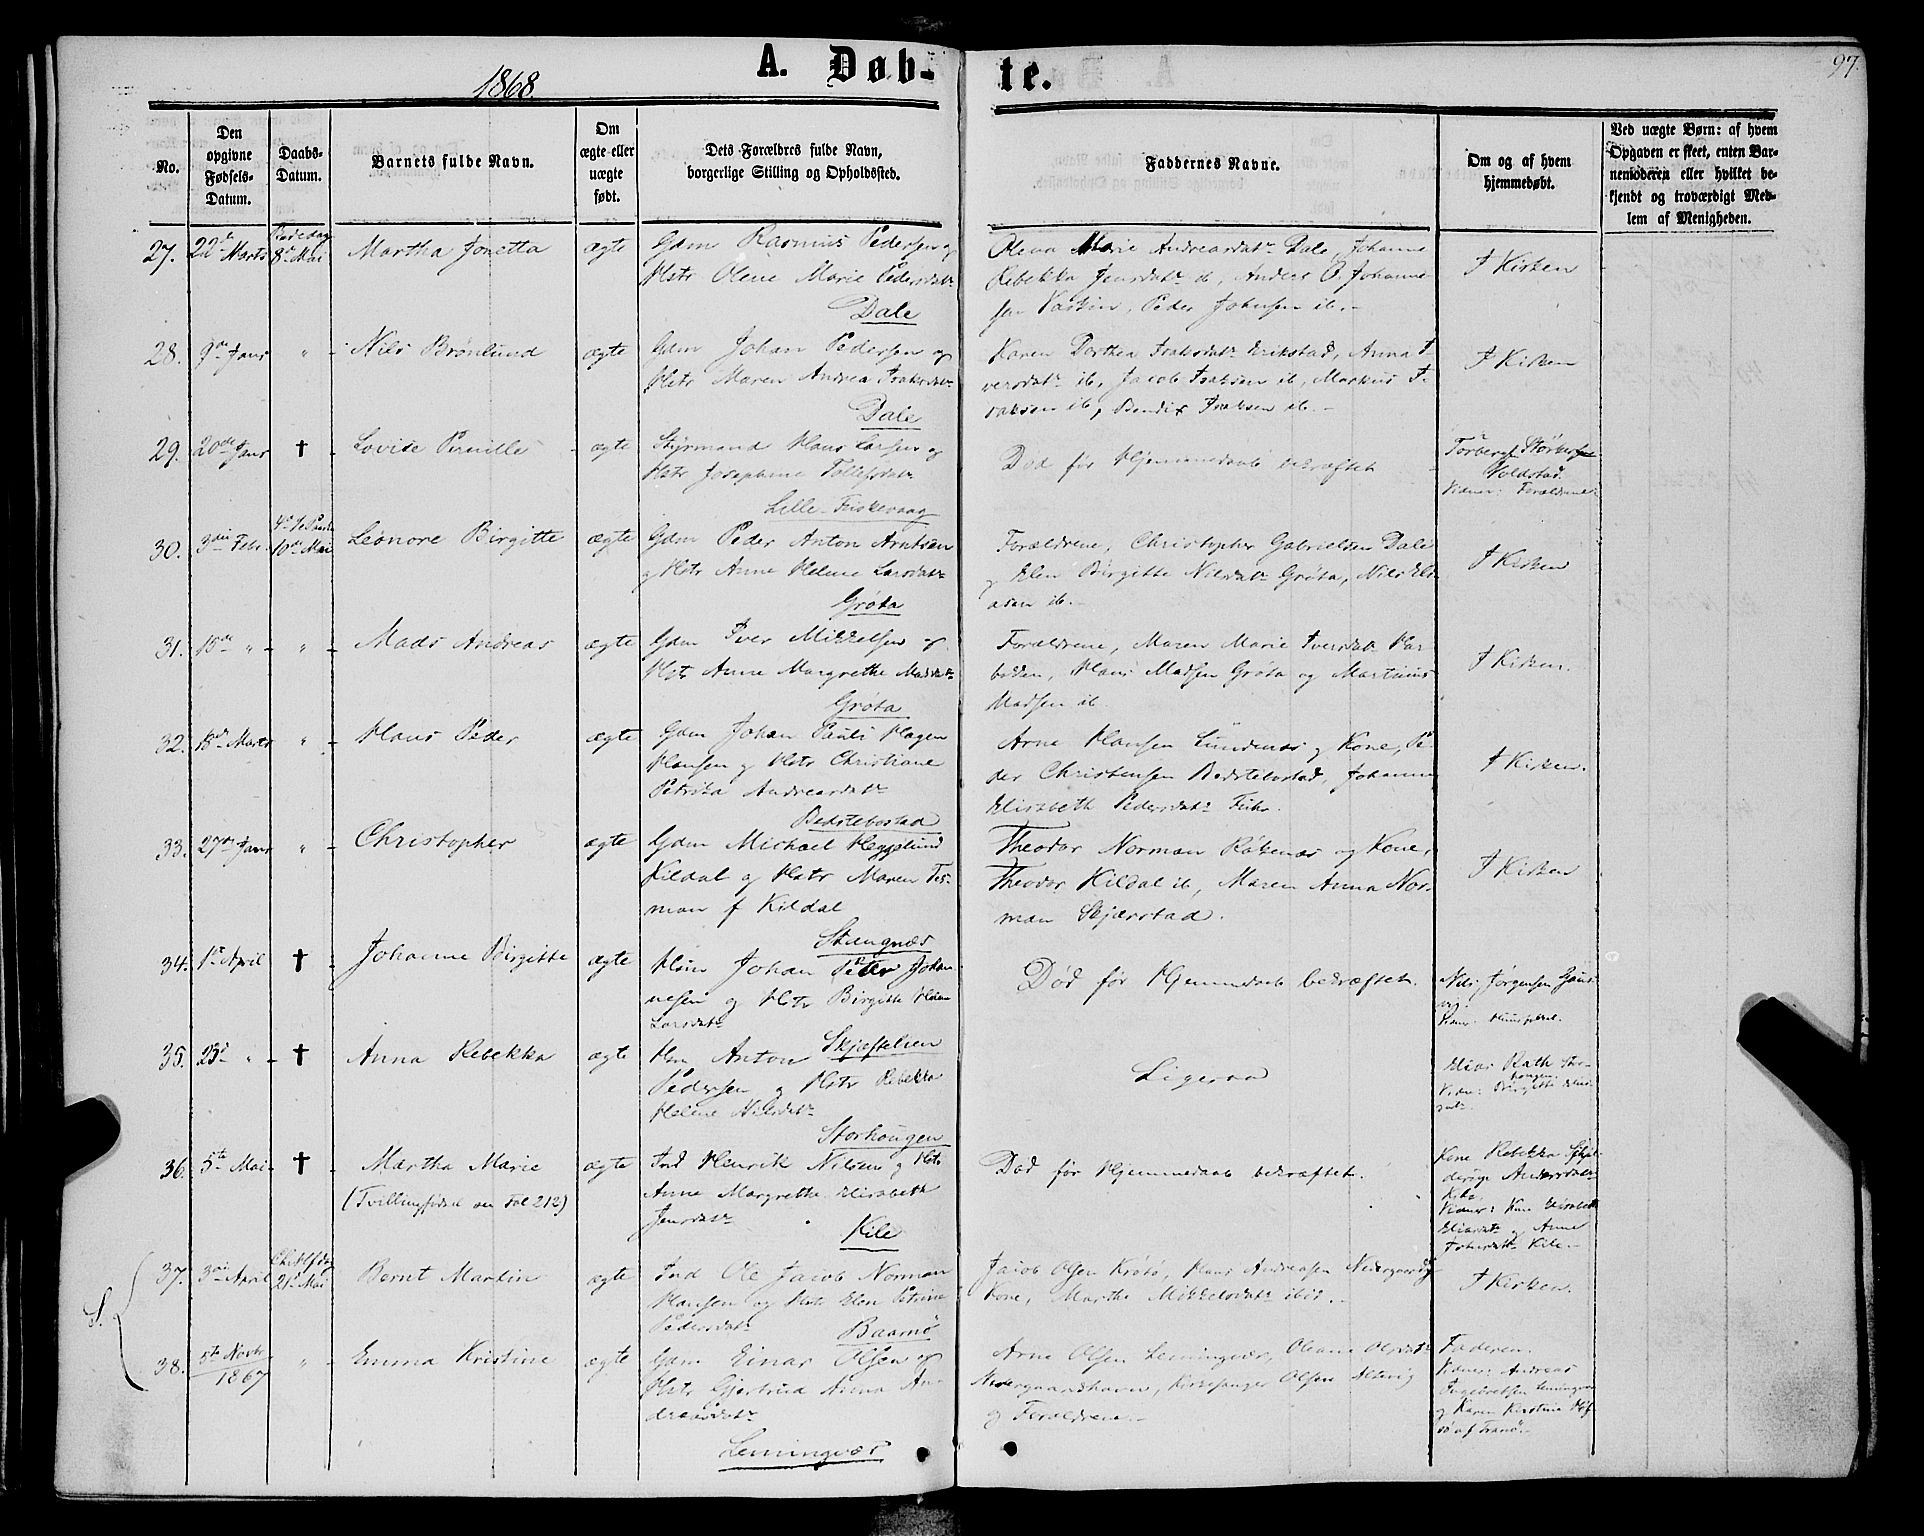 1868
A. Døb-
te.
97.
No.
Den opgivne Fødsels-Datum.
Daabs-Datum.
Barnets fulde Navn.
Om ægte eller uægte født.
Dets Forældres fulde Navn, borgerlige Stilling og Opholdssted.
Faddernes Navne.
Om og af hvem hjemmedøbt.
Ved uægte Børn: af hvem Opgaven er skeet, enten Barnemoderen eller hvilket bekjendt og troværdigt Medlem af Menigheden.
27. 22de Marts Bededag 8de Mai Martha Jonetta ægte Gdm Rasmus Pedersen og
Hstr Olene Marie Pedersdatr
Dale
Olena Marie Andreasdatr Dale, Johanne
Rebekka Jensdatr ib, Anders O. Johanne
sen, Peder Johnsen ib. -
I Kirken
28. 9de Janr " - Nils Brönlund ægte Gdm Johan Pedersen og
Hstr Maren Andrea Isaksdatr
Dale
Karen Dorthea Isaksdatr Erikstad, Anna I-
versdatr ib, Jacob Isaksen ib, Markus I-
saksen ib, Bendix Isaksen ib. -
I Kirken
29. 20de Janr † - Lovise Pernille - ægte Styrmand Hans Larsen og
Hstr Josephine Tollefsdatr
Lille-Fiskevaag
Død før Hjemmedaab bekræftet
Torberg Størkersen
Voldstad.
Vidner: Forældrene.
30. 3die Febr. 4de S. e. Paaske 10de Mai Leonore Birgitte ægte Gdm Peder Anton Arntsen
og Hstr Anne Helene Larsdatr
Grøta
Forældrene, Christopher Gabrielsen Dale
og Elen Birgitte Nilsdatr Grøta, Nils Eli-
asen ib. -
I Kirken
31. 15de " - " - Mads Andreas ægte Gdm Iver Mikkelsen og
Hstr Anne Margrethe Madsdatr
Grøta
Forældrene, Maren Marie Iversdatr Har-
botten, Hans Madsen Grøta og Martinus
Madsen ib.
I Kirken.
32. 18de Marts " - Hans Peder ægte Gdm Johan Pauli Hagen
Hansen og Hstr Christiane
Petrøta Andreasdatr
Bedstebostad
Arne Hansen Lundenæs og Kone, Pe-
der Christensen Bedstebostad, Johanne
Elisabeth Pedersdatr
I Kirken.
33. 27de Janr " - Christopher ægte Gdm Michael Heggelund
Kildal og Hstr Maren Tes-
man f Kildal
Stangnæs
Theodor Norman Røkenæs og Kone,
Theodor Kildal ib, Maren Anna Nor-
man Skjærstad.
I Kirken
34. 1ste April † - Johanne Birgitte ægte Johan Peter Johan-
nesen og Hstr Birgitte
Larsdatr
Skjæftelien
Død før Hjemmedaab bekræftet.
Nils Jørgensen
35. 23de " - † - Anna Rebekka ægte Anton
Pedersen og Hstr Rebekka
Helene Nilsdatr
Storhaugen
Ligesaa
Elias Rath Stor-
haugen.
Vidn: Birgitte
36. 5te Mai - † - Martha Marie ægte Ind Henrik Nilsen og Hstr
(Tvillingfødsel see Fol 212)
Anne Margretha Elisabeth
Jensdatr
Kile
Død før Hjemmedaab bekræftet.
Kone Rebekka
Andersdatr
Kile.
Vidner: Kone Elisabeth
Eliasdatr og Anne
Johnsdatr Kile. -
37. 3die April Chr. Hf.dag 21de Mai Bernt Martin ægte Ind Ole Jacob Norman
Hansen og Hstr Elen Petrine
Pedersdatr
Baamø
Jacob Olsen Krøtø, Hans Andreasen Nedergaard og
Kone, Marthe Mikkelsdatr ibid. -
I Kirken.
S.
38. 5te Novbr 1867 " - Emma Kristine ægte Gdm Einar Olsen og
Hstr Gjertrud Anna An-
dreasdatr
Lemingvær
Arne Olsen Lemingvær, Oleana Olsdatr
Nedergaardshavn, Kirkesanger Olsen
og Forældrene. -
Faderen.
Vidner: Andreas
Ingebretsen Lemingvær
og Karen Kirstine
af Tranø. -